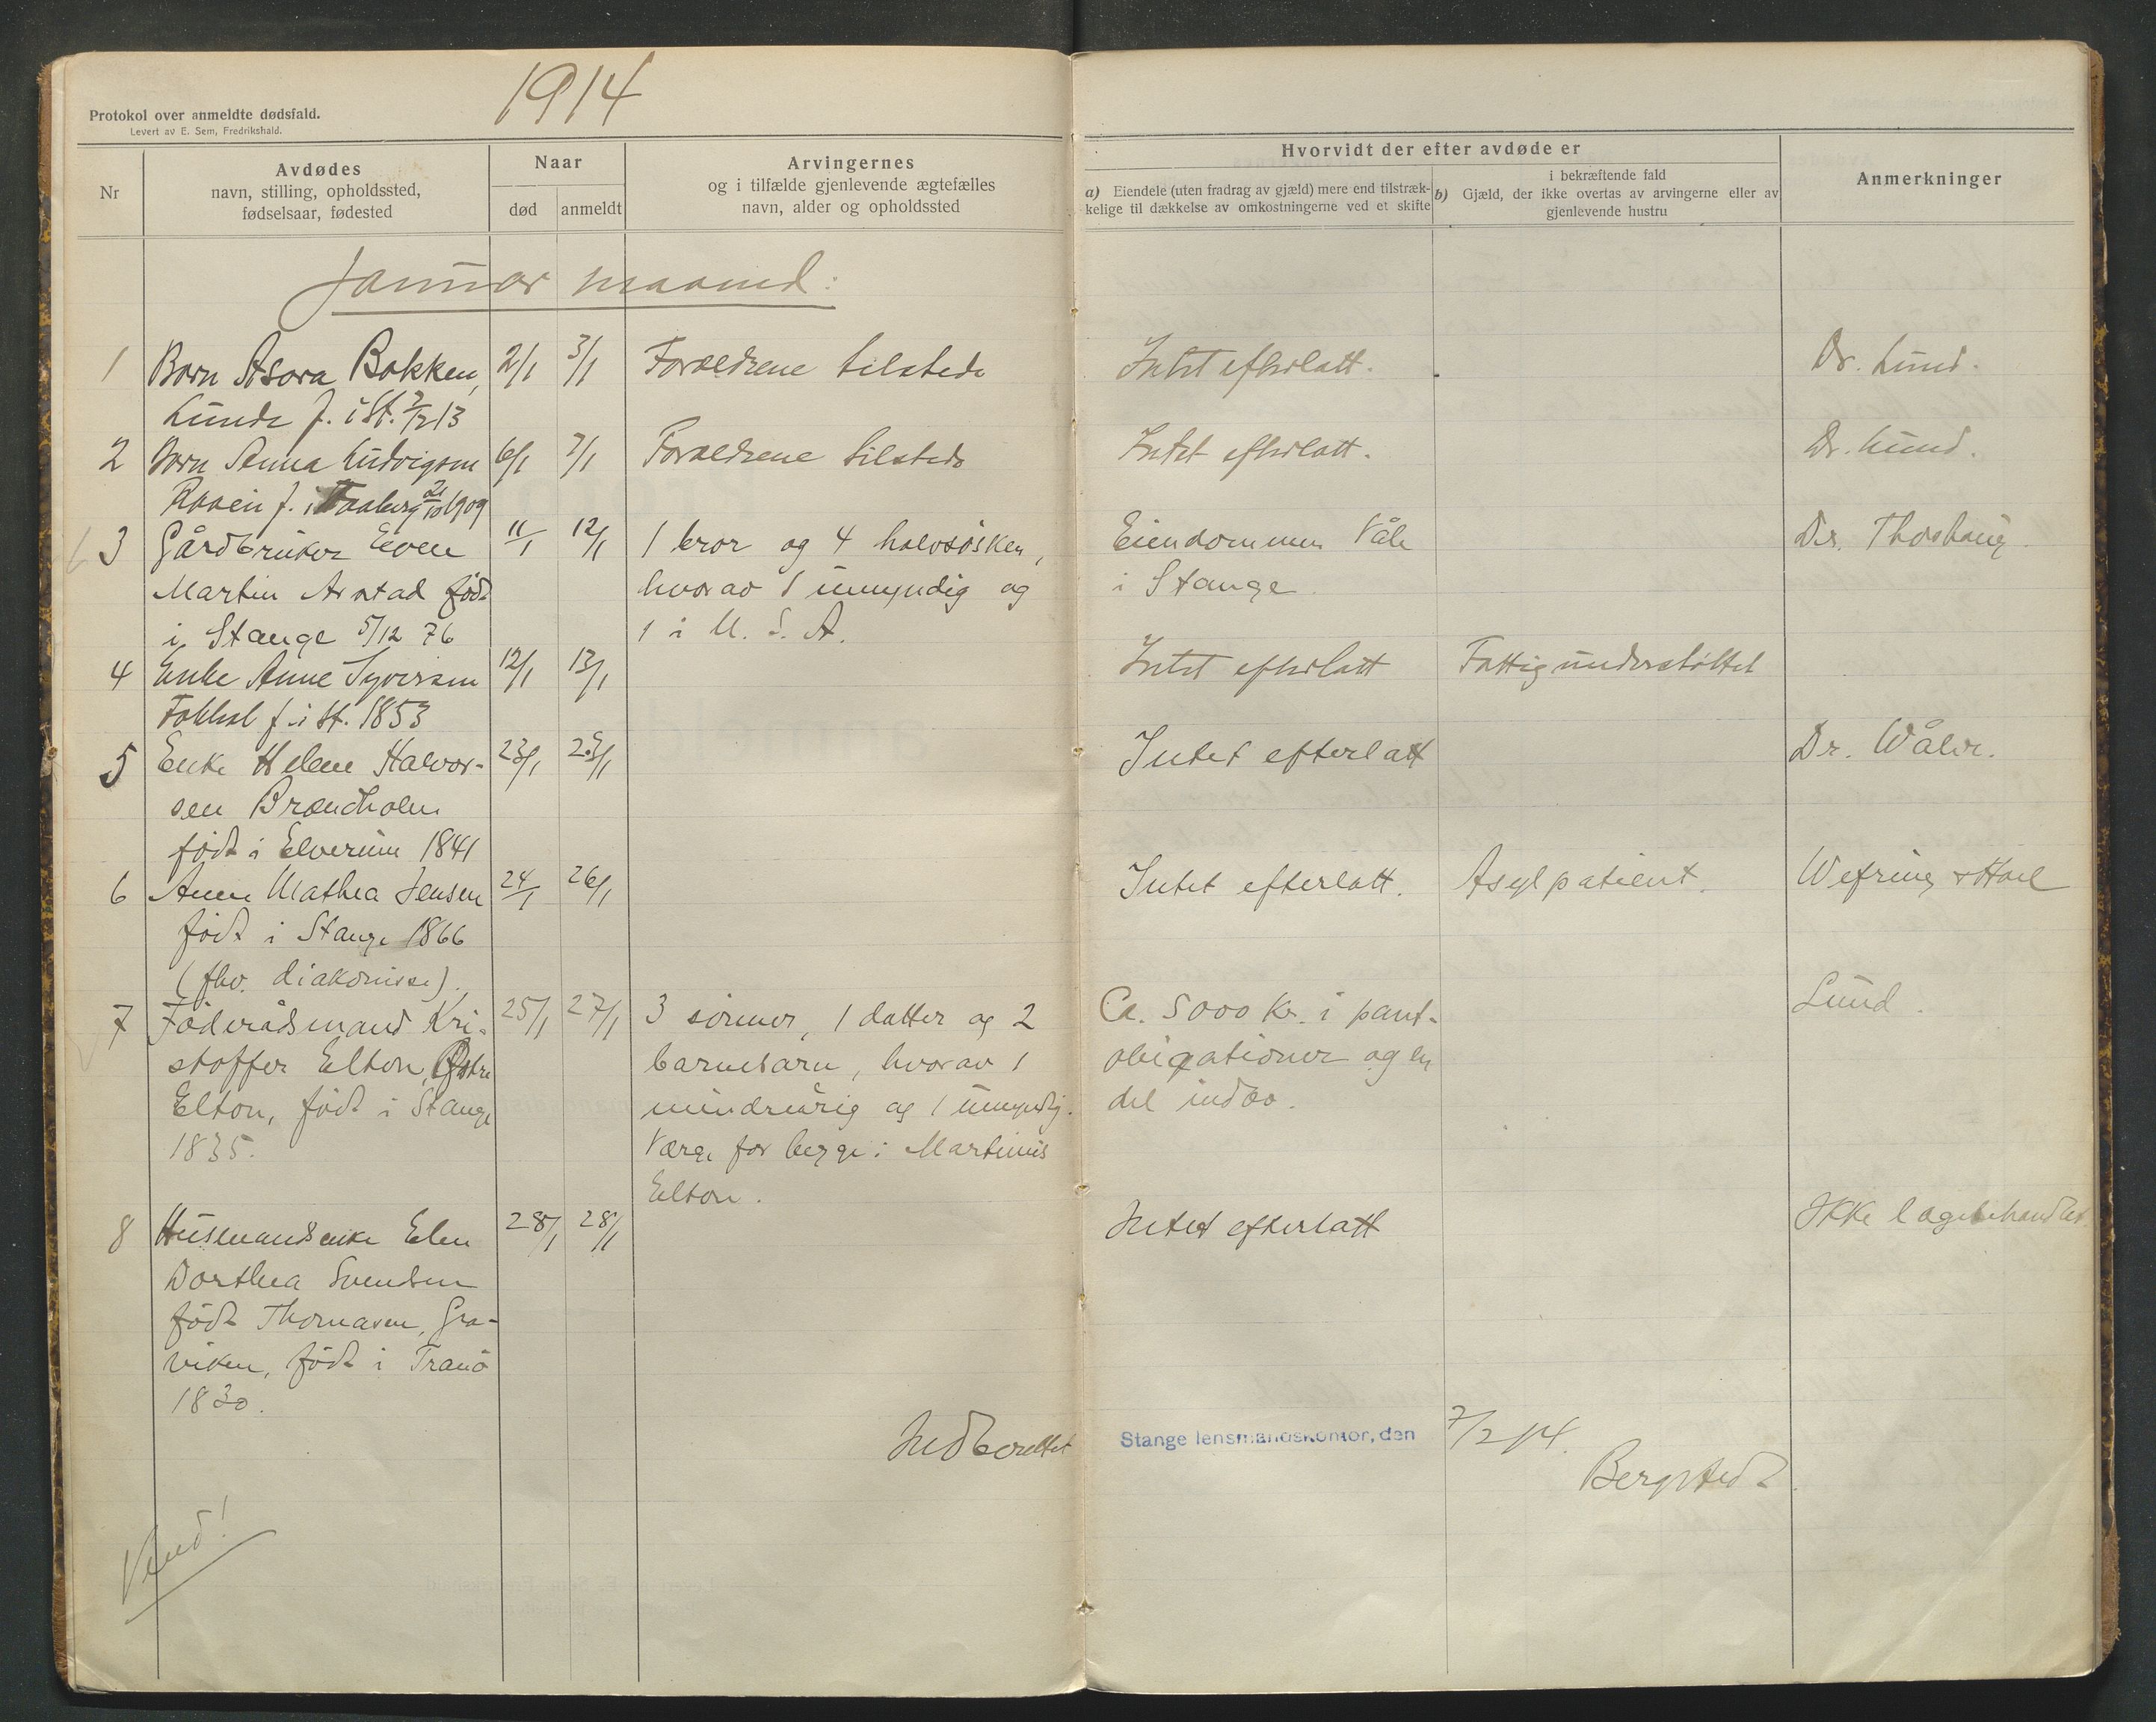 1914
Protokol over anmeldte dødsfald.
Levert av E. Sem, Fredrikshald.
Nr
Avdødes
navn, stilling, opholdssted,
fødselsaar, fødested
Naar
død
anmeldt
Arvingernes
og i tilfælde gjenlevende ægtefælles
navn, alder og opholdssted
Hvorvidt der efter avdøde er
a) Eiendele (uten fradrag av gjæld) mere end tilstræk-
kelige til dækkelse av omkostningerne ved et skifte
i bekræftende fald
b) Gjæld, der ikke overtas av arvingerne eller av
gjenlevende hustru
Anmerkninger
Januar maaned:
1 Barn Asora Bakken, 2/1 3/1 Forældrene tilstede Intet efterlatt. Dr. Lund.
Lunde f. i St. 13
2 Barn Anna Ludvigsen 6/1 7/1 Forældrene tilstede Intet efterlatt. Dr. Lund.
f. i Faaberg 21/10 1909
3 Gårdbruker Even 11/1 12/1 1 bror og 4 halvsøsken, Eiendommen Våle Dr. Thorshaug.
Martin Arstad født hvorav 1 umyndig og i Stange
i Stange 5/12 76 1 i U. S. A.
4 Enke Anne Syversen 12/1 13/1 Intet efterlatt Fattigunderstøttet
f. i St. 1853
5 Enke Helene Halvor- 23/1 25/1 Intet efterlatt Dr. Wåler.
sen Brændholen
født i Elverum 1841
6 Anne Mathea Jensen 24/1 26/1 Intet efterlatt. Asylpatient. Wefring
født i Stange 1866
(fhv. diakonisse).
7 Føderådsmand Kri- 25/1 27/1 3 sønner, 1 datter og 2 Ca. 5000 Kr. i pant- Lund.
stoffer Elton, Østre barnebarn, hvorav 1 obigationer og en
Elton, født i Stange mindreårig og 1 umyndig. del indbo.
1835. Værge for begge: Martinus
Elton.
8 Husmandsenke Elen 28/1 28/1 Intet efterlatt Ikke lægebehandlet.
Dorthea Svendsen
født Thomasen, Gra-
viken, født i Tranö
1830.
Indberettet Stange lensmandskontor, den 7/2 14.
Bergstedt.
Vend!